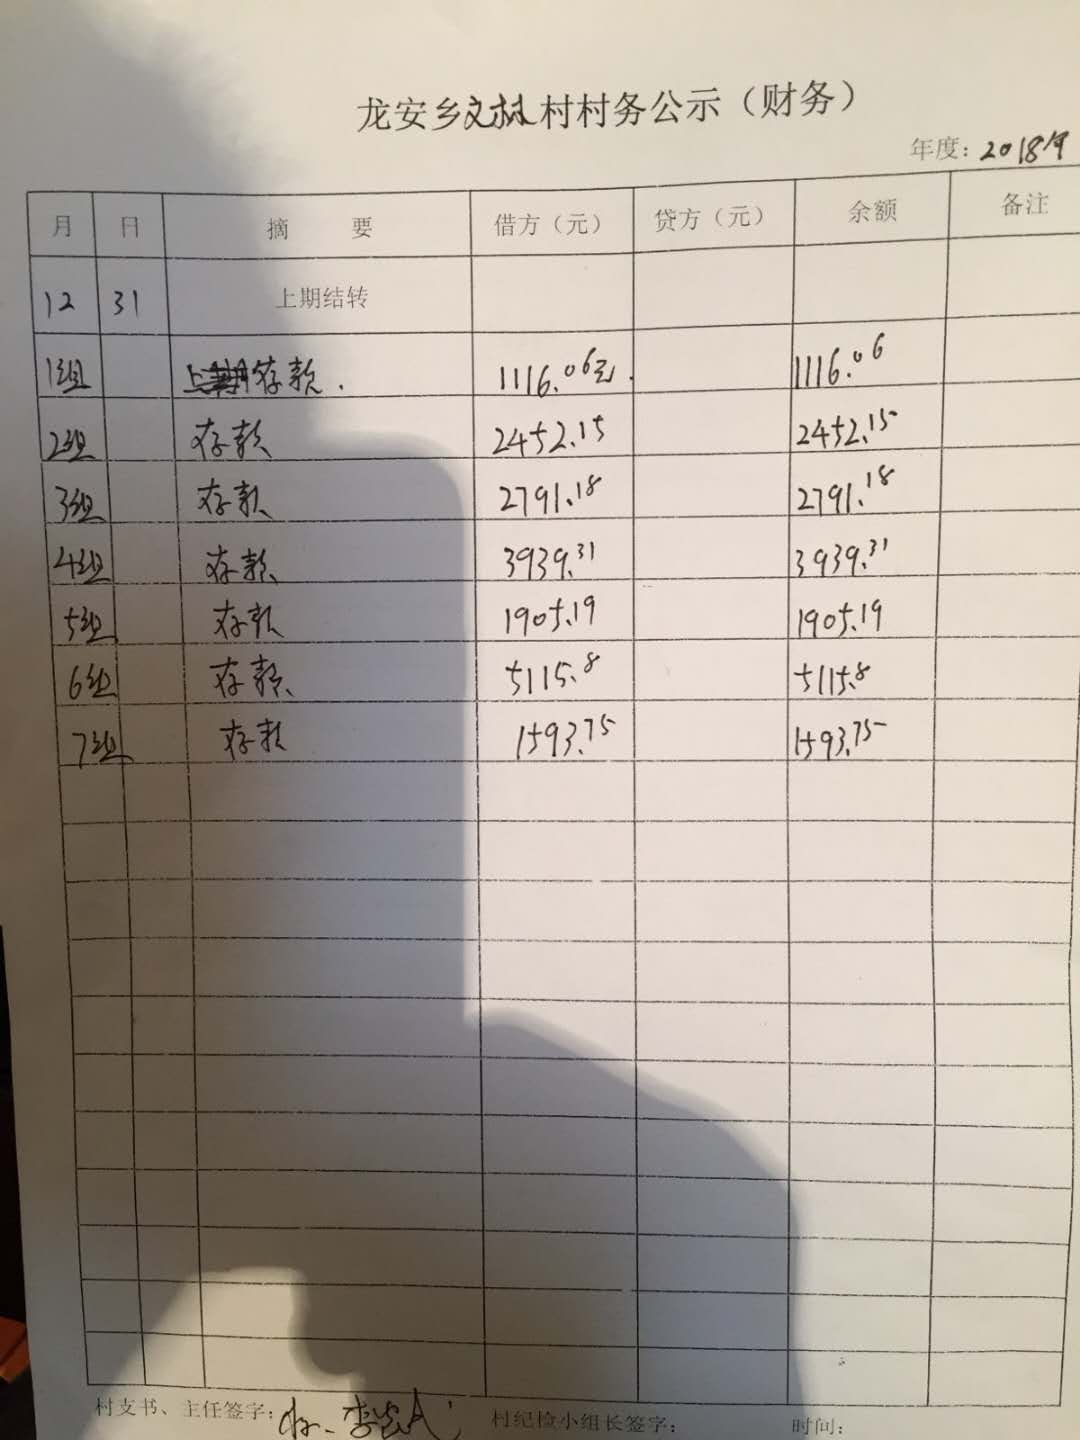 龙安乡文林村村务公示（财务）
年度：2018年
月 日 摘 要 借方（元） 贷方（元） 余额 备注
12 31 上期结转
1组 存款. 1116.06元. 1116.06
2组 存款 2452.15 2452.15
3组 存款 2791.18 2791.18
4组 存款 3939.31 3939.31
5组 存款 1905.19 1905.19
6组 存款 5115.8 5115.8
7组 存款 1593.75 1593.75
村支书、主任签字： 村纪检小组长签字： 时间：